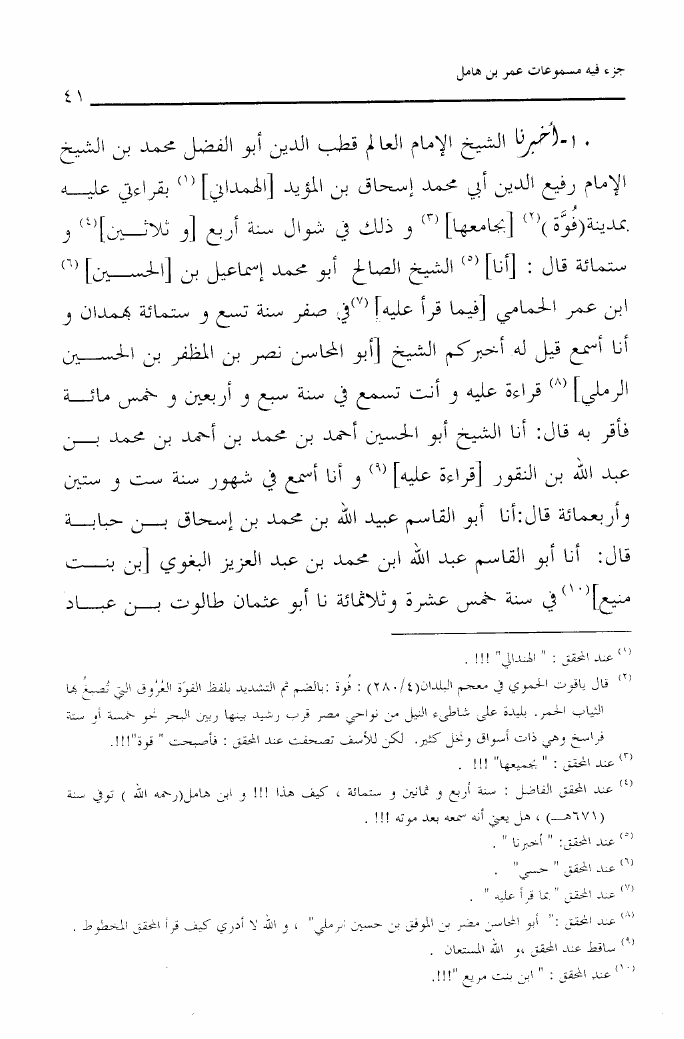 جزء فيه مسموعات عمر بن هامل
٤١
١٠-أخبرنا الشيخ الإمام العالم قطب الدين أبو الفضل محمد بن الشيخ
الإمام رفيع الدين أبي محمد إسحاق بن المؤيد [الهمداني] (١) بقراءتي عليه
بمدينة(فُوَّة )(٢) [بجامعها] (٣) و ذلك في شوال سنة أربع [و ثلاثين](٤) و
ستمائة قال : [أنا] (٥) الشيخ الصالح أبو محمد إسماعيل بن [الحسين] (٦)
ابن عمر الحمامي [فيما قرأ عليه] (٧)في صفر سنة تسع و ستمائة بهمدان و
أنا أسمع قيل له أخبركم الشيخ [أبو المحاسن نصر بن المظفر بن الحسين
الرملي] (٨) قراءة عليه و أنت تسمع في سنة سبع و أربعين و خمس مائة
فأقر به قال: أنا الشيخ أبو الحسين أحمد بن محمد بن أحمد بن محمد بن
عبد الله بن النقور [قراءة عليه] (٩) و أنا أسمع في شهور سنة ست و ستين
وأربعمائة قال:أنا أبو القاسم عبيد الله بن محمد بن إسحاق بن حبابة
قال: أنا أبو القاسم عبد الله ابن محمد بن عبد العزيز البغوي [بن بنت
منيع](١٠) في سنة خمس عشرة وثلاثمائة نا أبو عثمان طالوت بن عباد
(١) عند المحقق : " الهندالي" !!! .
(٢) قال ياقوت الحموي في معجم البلدان(٢٨٠/٤) : فُوة :بالضم ثم التشديد بلفظ الفوّة العُرُوق التي تُصبغُ بها
الثياب الحمر. بليدة على شاطىء النيل من نواحي مصر قرب رشيد بينها وبين البحر نحو خمسة أو ستة
فراسخ وهي ذات أسواق ونخل كثير. لكن للأسف تصحفت عند المحقق : فأصبحت " قوة"!!!.
(٣) عند المحقق : " بجميعها" !!! .
(٤) عند المحقق الفاضل : سنة أربع و ثمانين و ستمائة ، كيف هذا !!! و ابن هامل(رحمه الله ) توفي سنة
(٦٧١هـ) ، هل يعني أنه سمعه بعد موته !!! .
(٥) عند المحقق: " أخبرنا " .
(٦) عند المحقق " حسي" .
(٧) عند المحقق " بما قرأ عليه " .
(٨) عند المحقق :" أبو المحاسن مضر بن الموفق بن حسين نرملي" ، و الله لا أدري كيف قرأ المحقق المخطوط .
(٩) ساقط عند المحقق ،و الله المستعان .
(١٠) عند المحقق : " ابن بنت مريع "!!!.